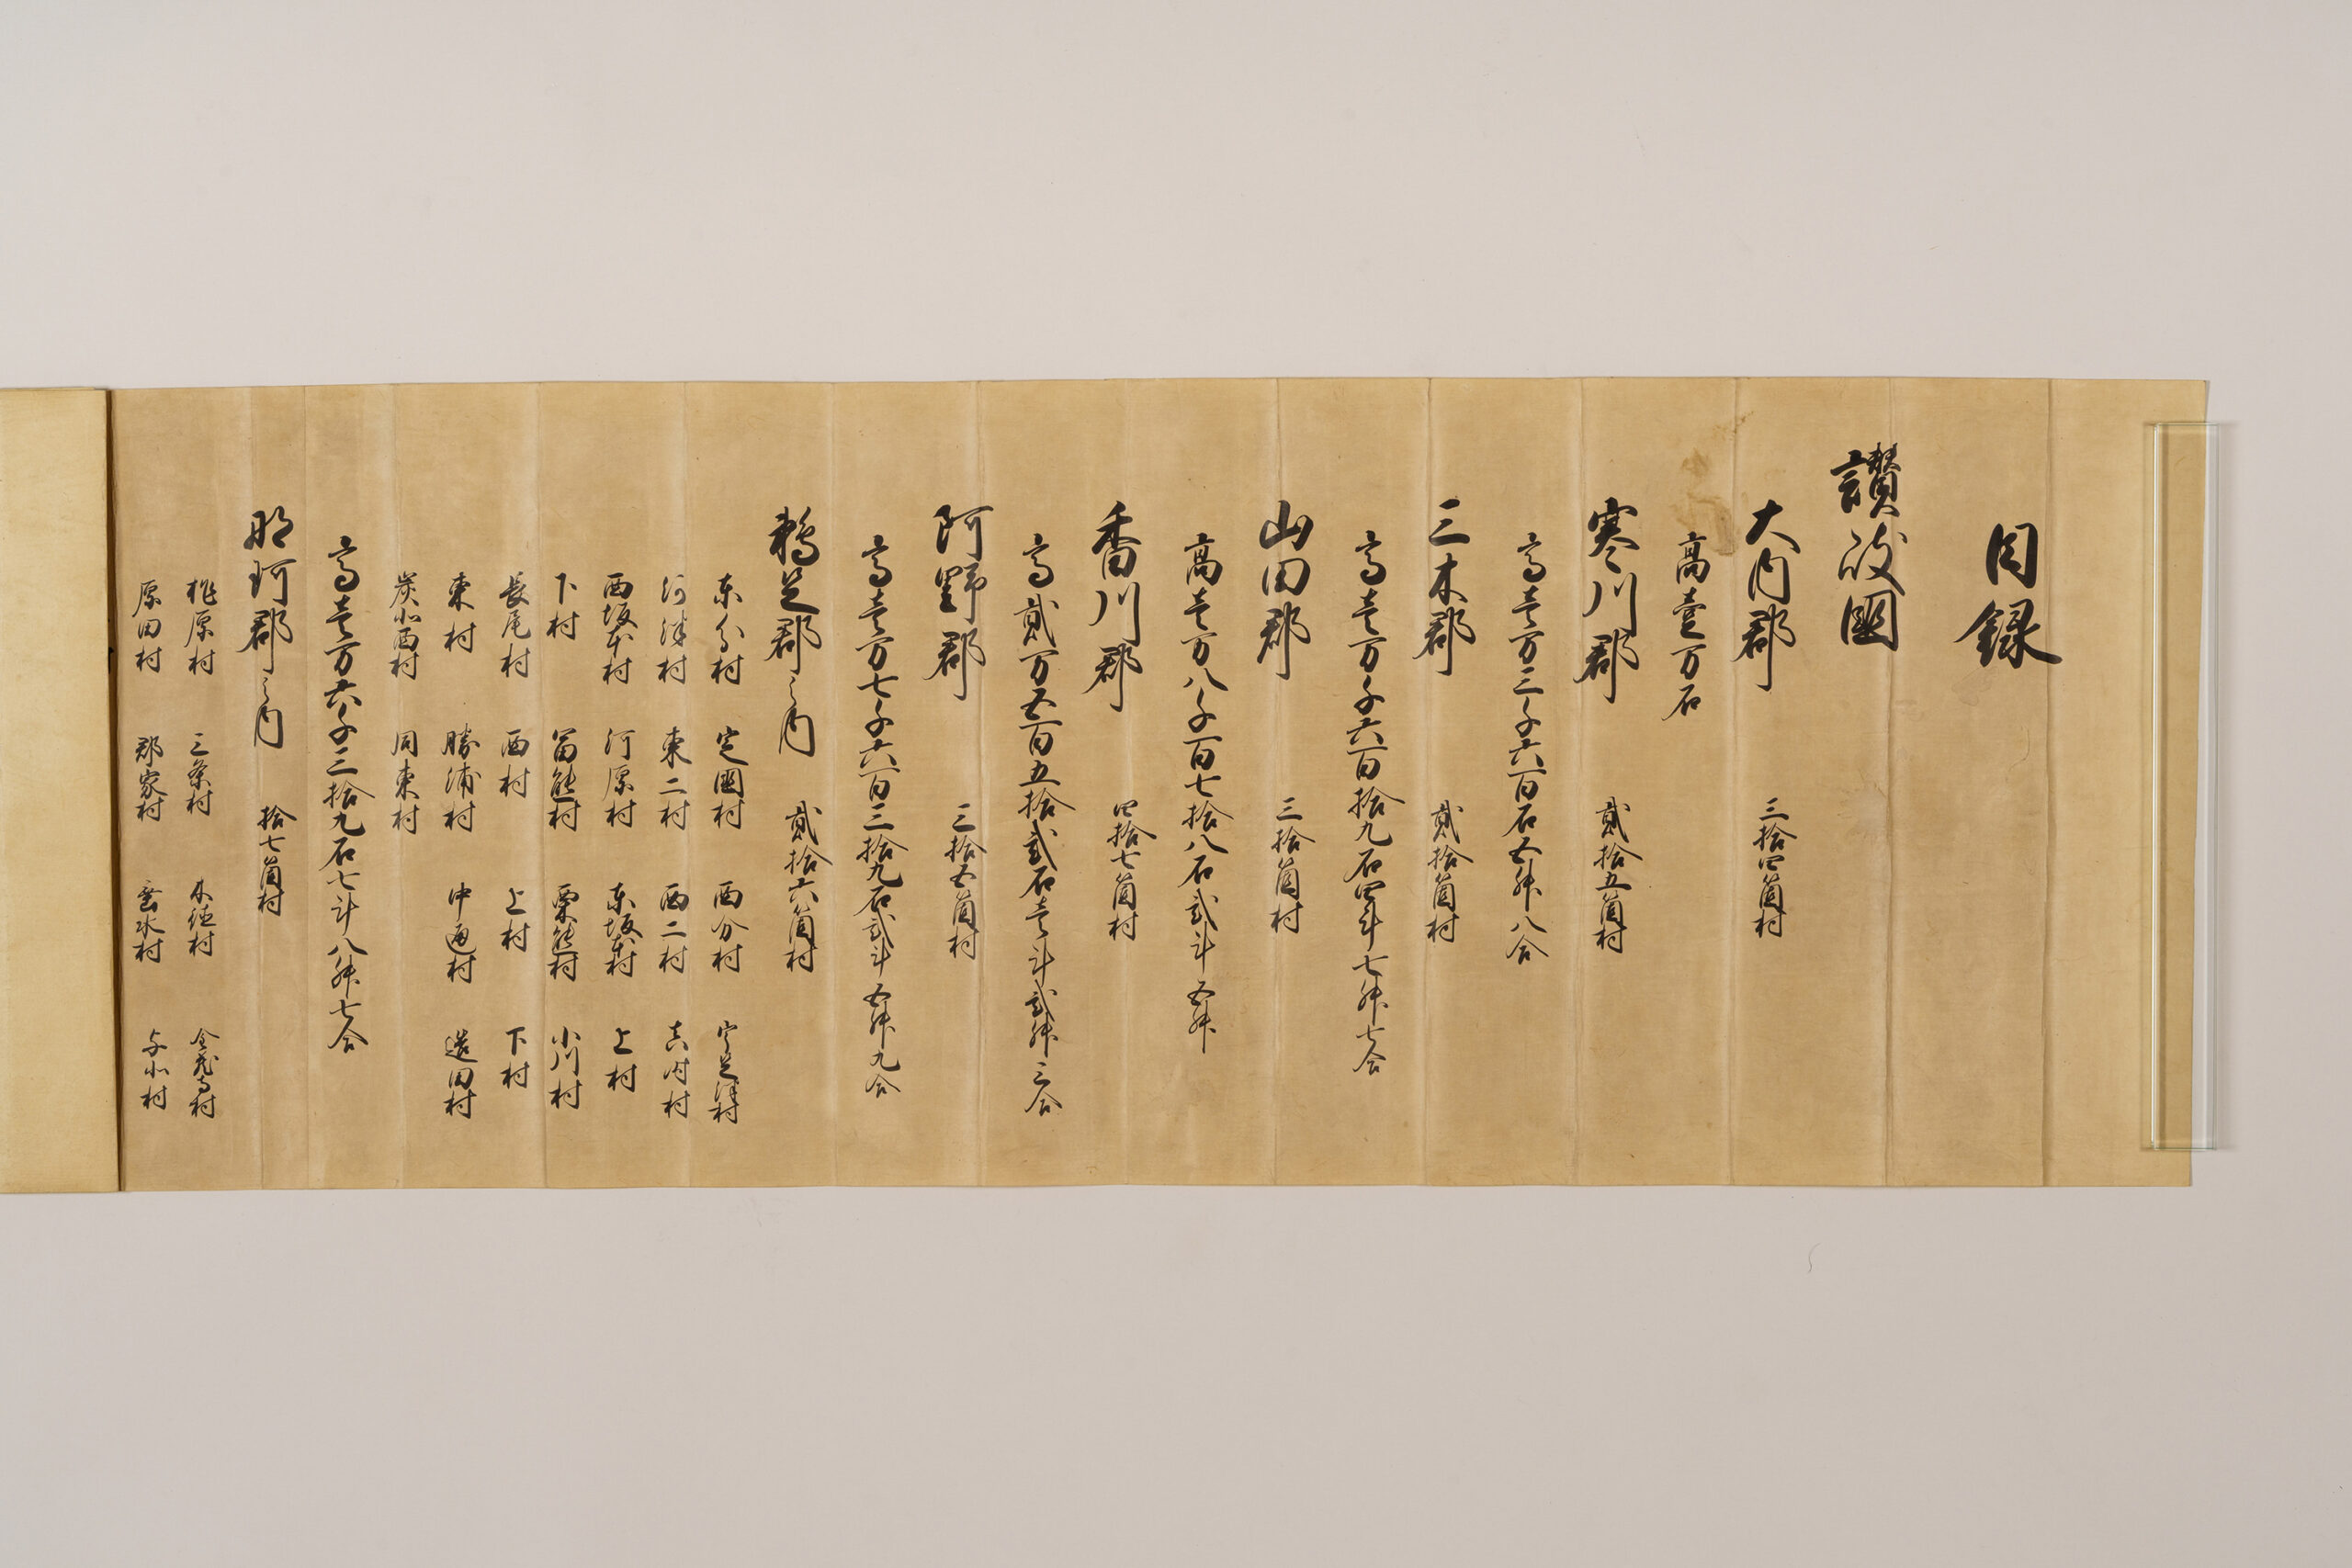 目録
讃岐國
大内郡 三拾四箇村
高壹万石
寒川郡 貳拾五箇村
高壱万三千六百石五升八合
三木郡 貳拾箇村
高壱万千六百拾九石四斗七升七合
山田郡 三拾箇村
高壱万八千百七拾八石貳斗五升
香川郡 四拾七箇村
高貳万五百五拾貳石壱斗貳升三合
阿野郡 三拾五箇村
高壱万七千六百三拾九石貳斗五升九合
鵜足郡之内 貳拾六箇村
東分村 定國村 西分村 宇足津村
河津村 東二村 西二村 真内村
西坂本村 河原村 東坂本村 上村
下村 富熊村 栗熊村 小川村
長尾村 西村 上村 下村
東村 勝浦村 中通村 造田村
炭所西村 同東村
高壱万六千二拾九石七斗八升七合
那珂郡之内 拾七箇村
柞原村 三条村 木徳村 金蔵寺村
原田村 郡家村 垂水村 与北村